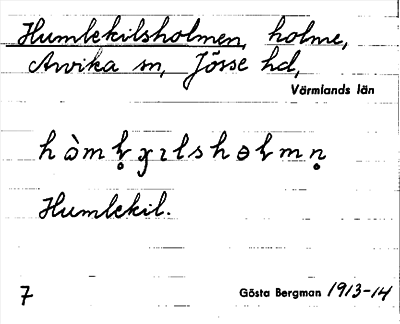 Humlekilsholmen, holme,
Arvika sn, Jösse hd,
Värmlands län
Humlekil.
7
Gösta Bergman 1913-14